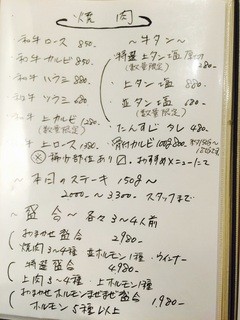 焼肉
和牛 ロース 850.-
和牛 カルビ 850.-
和牛 ハラミ 880.-
和牛 ツラミ 680.-
和牛 上カルビ 1280.-
(数量限定)
※ 希少部位あり
〜牛タン〜
特選 上タン塩
(数量限定)
上タン塩 880.-
(数量限定)
並タン塩 680.-
たんすじ タレ 480.-
骨付カルビ 100g 800.-
おすすめメニューにて
〜本日のステーキ 150g〜
2000.- 〜 3300.- スタッフまで
〜盛合〜 各々3〜4人前
おまかせ盛合 2980.-
焼肉3〜4種 並ホルモン1種・ウィンナー
特選盛合 4980.-
上肉3〜4種 上ホルモン1種
おまかせホルモンまぜまぜ盛合 1,980.-
ホルモン5種以上